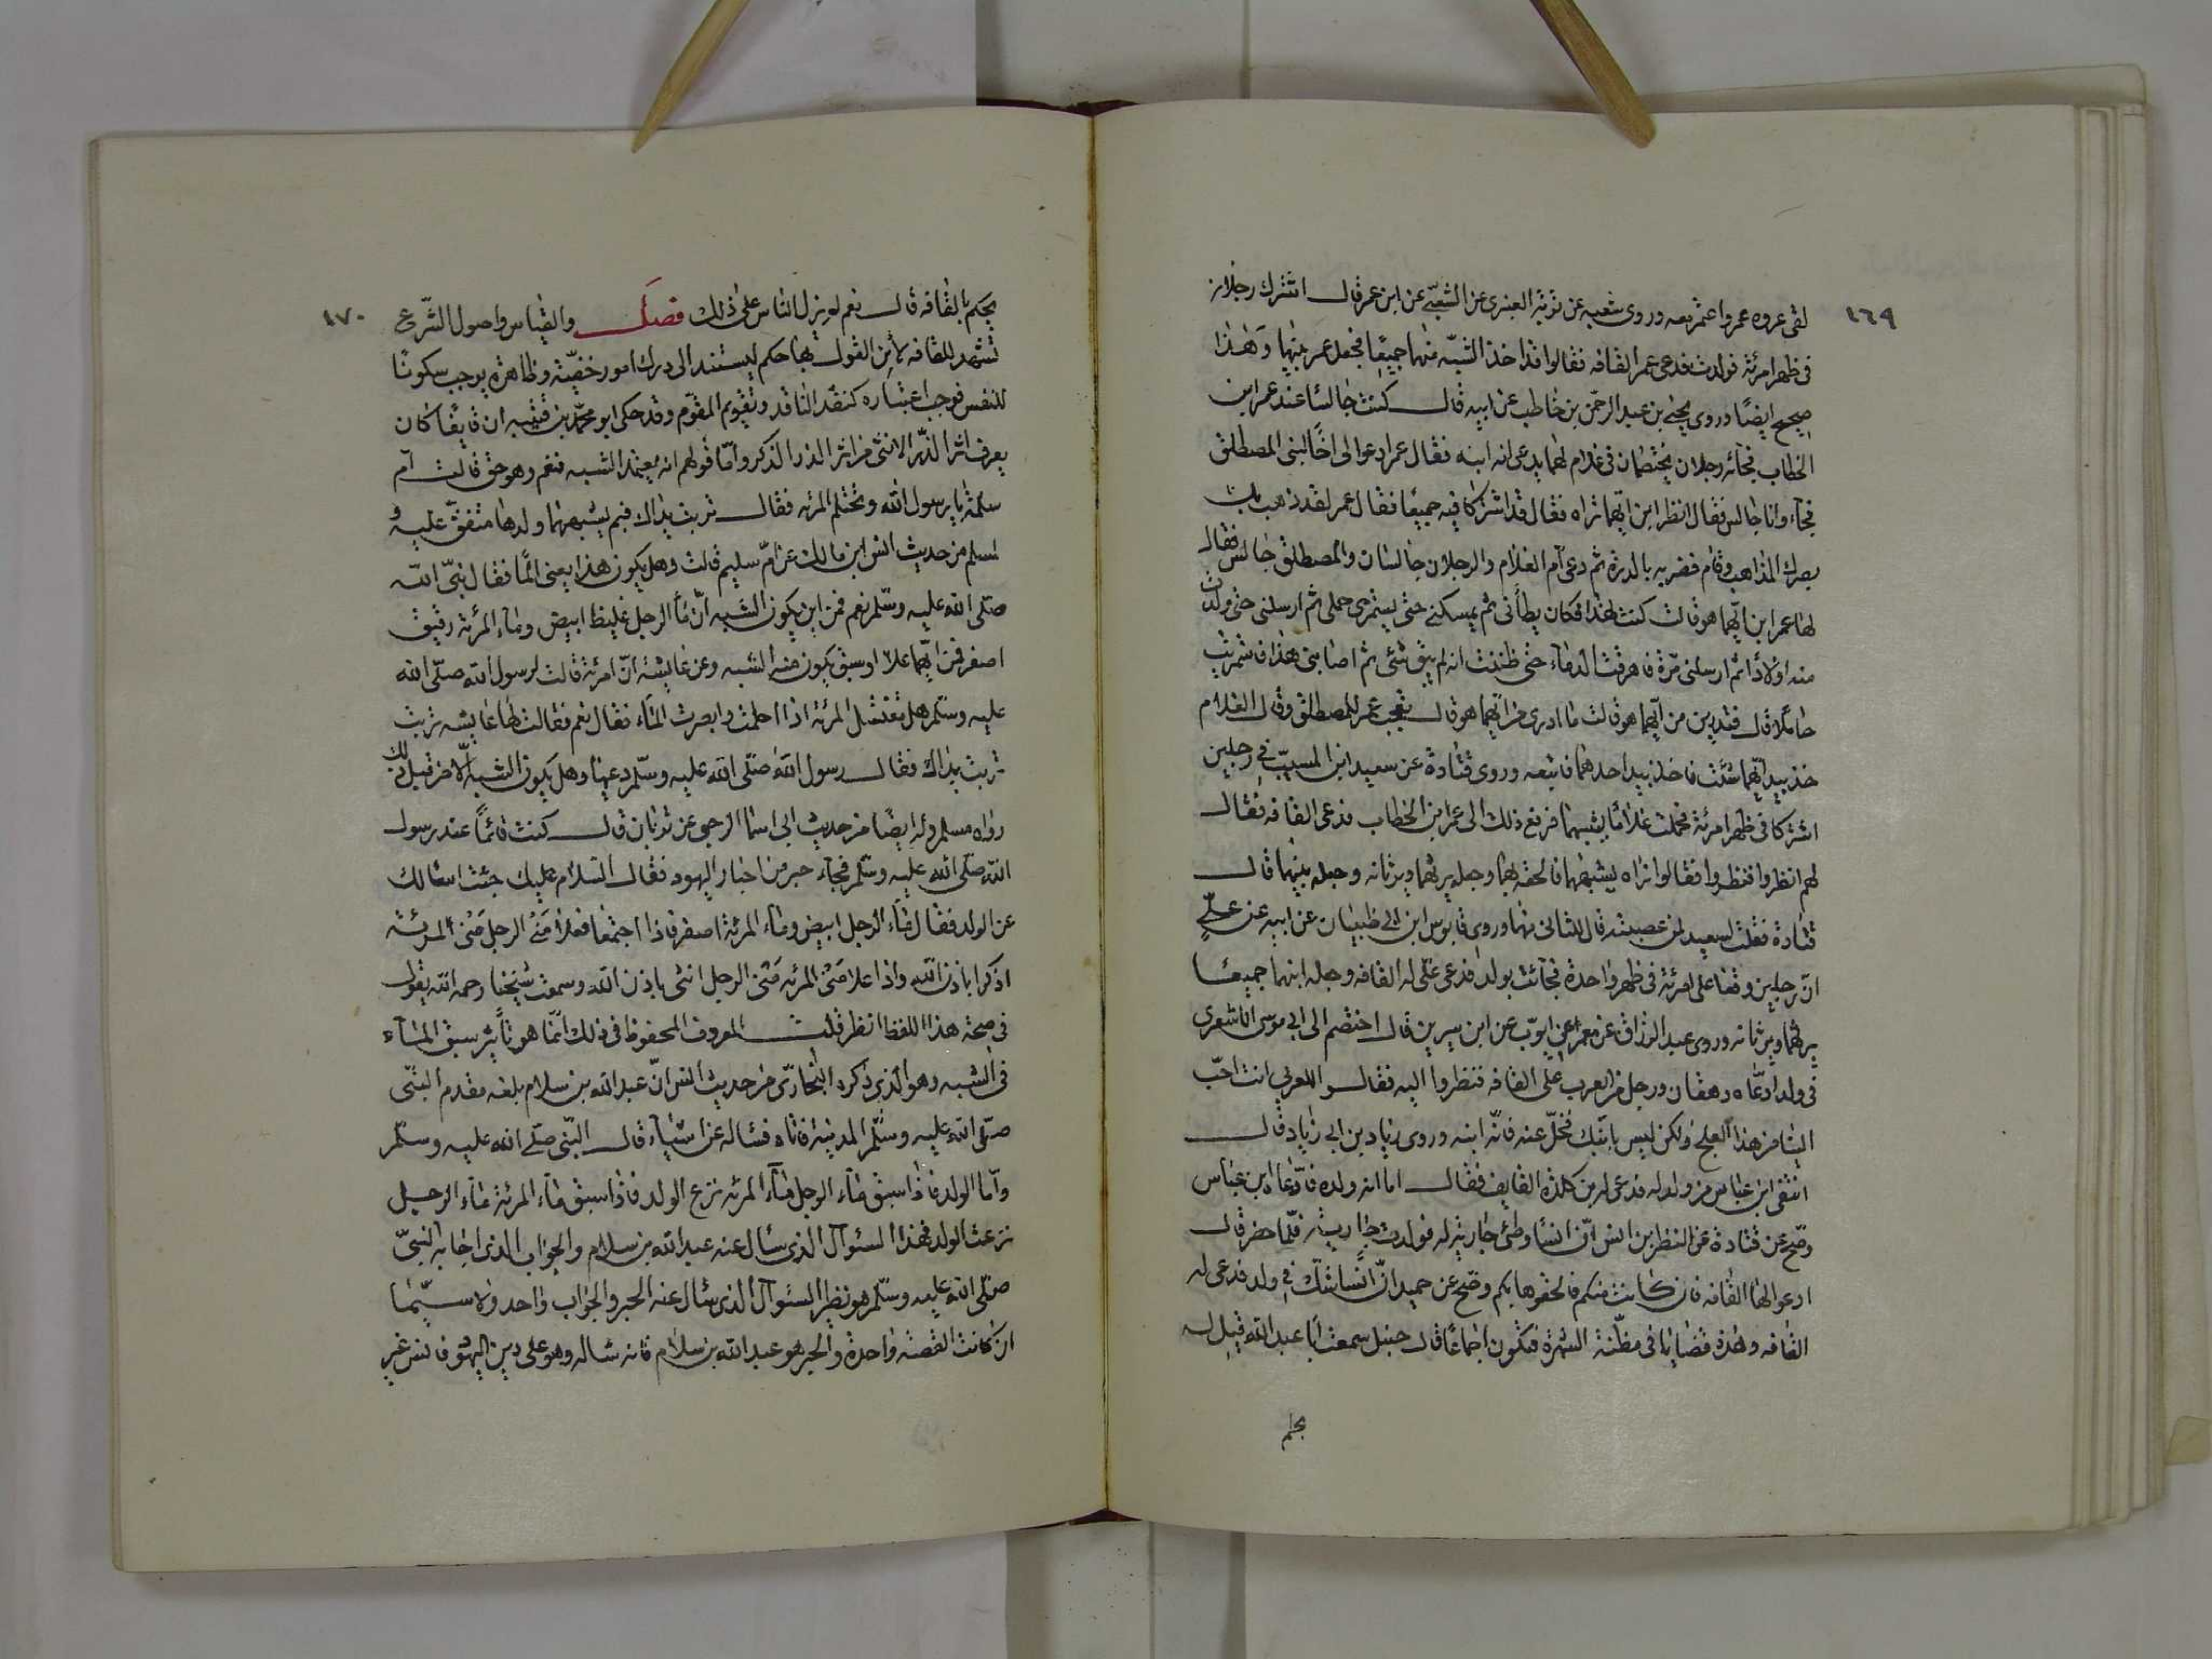 ١٦٩
لقى عروه عمروا عمر بعه وروى شعبه عن توبة العنبرى عن الشعبى عن ابن عمر قال اشترك رجلان
فى ظهر امرئة فولدت فدعى عمر القافه فقالوا قد اخذ الشبه منهما جميعا فجعل عمر بينهما وهذا
صحيح ايضا وروى يحيى بن عبد الرحمن بن حاطب عن ابيه قال كنت جالسا عند عمر ابن
الخطاب فجائه رجلان يختصمان فى غلام كلهما يدعى انه ابنه فقال عمر ادعوا الى اخا لبنى المصطلق
فجآء وانا جالس فقال انظر ابن ايهما تراه فقال قد اشتركا فيه جميعا فقال عمر لقد ذهب بك
بصرك المذاهب وقام فضربه بالدرة ثم دعى ام الغلام والرجلان جالسان والمصطلق جالس فقال
لها عمر ابن ايهما هو قالت كنت لهذا فكان يطأنى ثم يمسكنى حتى يستمرى حملى ثم ارسلنى حتى ولدت
منه اولادا ثم ارسلنى مرة فاهرقت الدماء حتى ظننت انه لم يبق شئ ثم اصابنى هذا فاستمريت
حاملا قال فتدرين من ايهما هو قالت ما ادرى من ايهما هو قال فعجب عمر للمصطلق وقال للغلام
خذ بيد ايهما شئت فاخذ بيد احدهما فاتبعه وروى قتادة عن سعيد ابن المسيب فى رجلين
اشتركا فى ظهر امرئة فحملت غلاما يشبهما فرفع ذلك الى عمر ابن الخطاب فدعى القافه فقال
لهم انظروا فنظروا فقالوا نراه يشبههما فالحقه بهما وجعله يرثهما ويرثانه وجعله بينهما قال
قتادة فقلت لسعيد لمن عصبته قال للثانى منهما وروى قابوس ابن ابى ظبيان عن ابيه عن على
ان رجلين وقعا على امرئة فى ظهر واحدة فجائت بولد فدعى على له القافه وجعله ابنهما جميعا
يرثهما ويرثانه وروى عبد الرزاق عن معمر عن ايوب عن ابن سيرين قال اختصم الى ابى موسى الاشعرى
فى ولد ادعاه دهقان ورجل من العرب على القافه فنظروا اليه فقالوا للعربى انت احب
الينا من هذا العلج ولكن ليس بابنك فخل عنه فانه ابنه وروى زياد بن ابى زياد قال
انتفى ابن عباس من ولد له فدعى له بن كلدة القايف فقال اما انه ولده فادعاه ابن عباس
وصح عن قتادة عن النظر بن انس ان انسا وطئ جارية له فولدت جارية فلما حضر قال
ادعوا لها القافه فان كانت منكم فالحقوها بكم وصح عن حميد ان انسا شك فى ولد فدعى له
القافه وهذه قضايا فى مظنة الشهرة فتكون اجماعا قال حنبل سمعت ابا عبد الله قيل له
يحكم
١٧٠
يحكم بالقافه قال نعم لم يزل الناس على ذلك فصل والقياس واصول الشرع
تشهد للقافه لان القول بها حكم ليستند الى درك امور خفية وظاهره يوجب سكونا
للنفس فوجب اعتباره كنقد الناقد وتقويم المقوم وقد حكى ابو محمد بن قتيبه ان قايفا كان
يعرف اثر الذر الانثى من اثر الذر الذكر واما قولهم انه يعتمد الشبه فنعم وهو حق قالت ام
سلمة يا رسول الله وتحتلم المرئه فقال تربت يداك فبم يشبهها ولدها متفق عليه و
لمسلم من حديث انس ابن مالك عن ام سليم قالت وهل يكون هذا يعنى المآ فقال نبى الله
صلى الله عليه وسلم نعم فمن اين يكون الشبه ان مآ الرجل غليظ ابيض ومآء المرئة رقيق
اصفر فمن ايهما علا او سبق يكون منه الشبه وعن عايشة ان امرئة قالت لرسول الله صلى الله
عليه وسلم هل تغتسل المرئة اذا احلمت وابصرت المآء فقال نعم فقالت لها عايشه تربت
تربت يداك فقال رسول الله صلى الله عليه وسلم دعيها وهل يكون الشبه الا من قبل ذلك
رواه مسلم وله ايضا من حديث ابى اسما الرحبى عن ثوبان قال كنت قائما عند رسول
الله صلى الله عليه وسلم فجآء حبر من احبار اليهود فقال السلام عليك جئت اسئالك
عن الولد فقال مآء الرجل ابيض ومآء المرئة اصفر فاذا اجتمعا فعلا منى الرجل منى المرئة
اذكرا باذن الله واذا علا منى المرئه منى الرجل انثى باذن الله وسمعت شيخنا رحمه الله يقول
فى صحة هذا اللفظ انظر قلت المعروف المحفوظ فى ذلك انما هو تأثير سبق المآء
فى الشبه وهو الذى ذكره البخارى من حديث انس ان عبد الله بن سلام بلغه مقدم النبى
صلى الله عليه وسلم المدينة فاتاه فسئاله عن اشياء قال النبى صلى الله عليه وسلم
واما الولد فاذا سبق مآء الرجل مآء المرئه نزع الولد فاذا سبق مآء المرئة مآء الرجل
نزعت الولد فهذا السئوال الذى سأل عنه عبد الله بن سلام والجواب الذى اجابه النبى
صلى الله عليه وسلم هو نظير السئوال الذى سئال عنه الحبر والجواب واحد ولا سيما
ان كانت القصة واحدة والحبر هو عبد الله بن سلام فانه سئاله وهو على دين اليهود فانسى غير